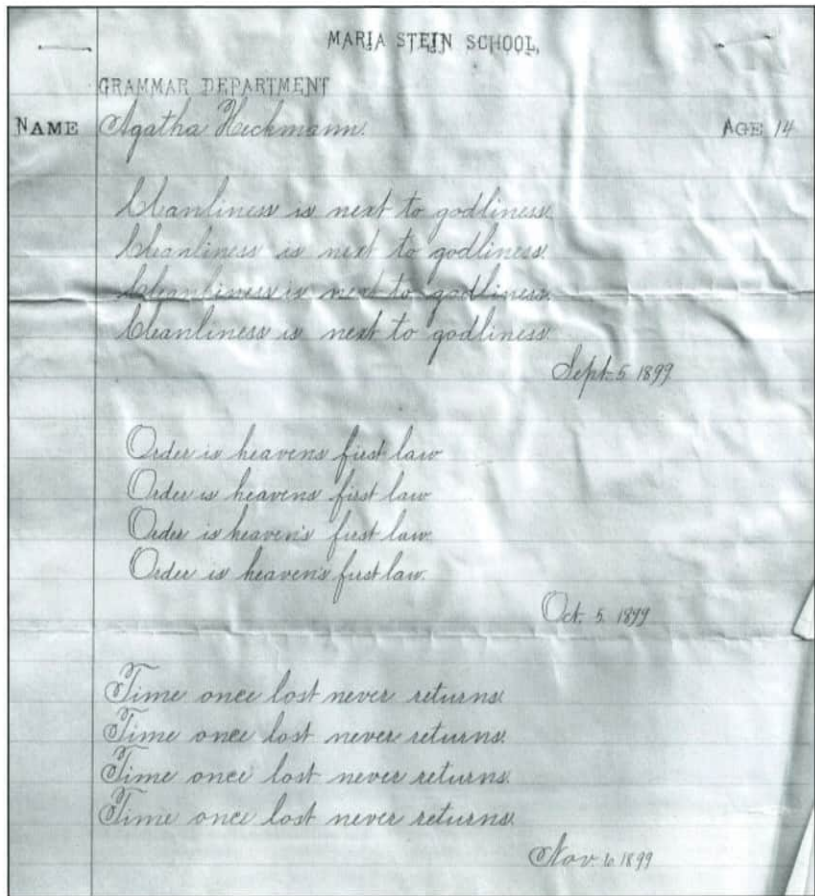 MARIA STEIN SCHOOL,
GRAMMAR DEPARTMENT
NAME Agatha Heckmann. AGE 14
Cleanliness is next to godliness.
Cleanliness is next to godliness.
Cleanliness is next to godliness.
Cleanliness is next to godliness.
Sept. 5 1899
Order is heavens first law
Order is heavens first law
Order is heaven's first law.
Order is heaven's first law.
Oct. 5. 1899
Time once lost never returns.
Time once lost never returns.
Time once lost never returns.
Time once lost never returns.
Nov. 6 1899